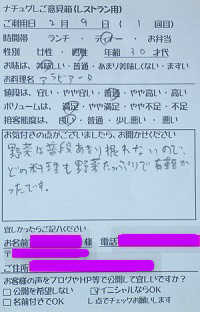 ナチュグレご意見箱(レストラン用)
ご利用日 2月 9日 ( 1 回目)
時間帯 ランチ・ディナー・お弁当
性別 女性・男性 年齢 30 才代
お味は、美味しい・普通・あまり美味しくない・まずい
お料理名 アラビアータ
値段は、安い・やや安い・普通・やや高い・高い
ボリュームは、満足・やや満足・やや不足・不足
接客態度は、良い・普通・少し悪い・悪い
お気付きの点がございましたら、お聞かせください
野菜は普段あまり摂れないので、
どの料理も野菜たっぷりで
かったです。
宜しかったらご記入ください
お名前 様 電話
〒
ご住所
お客様の声をブログやHP等で公開して宜しいですか?
□公開を希望しない ☑イニシャルならOK
□名前付きでOK レ点でチェックお願いします